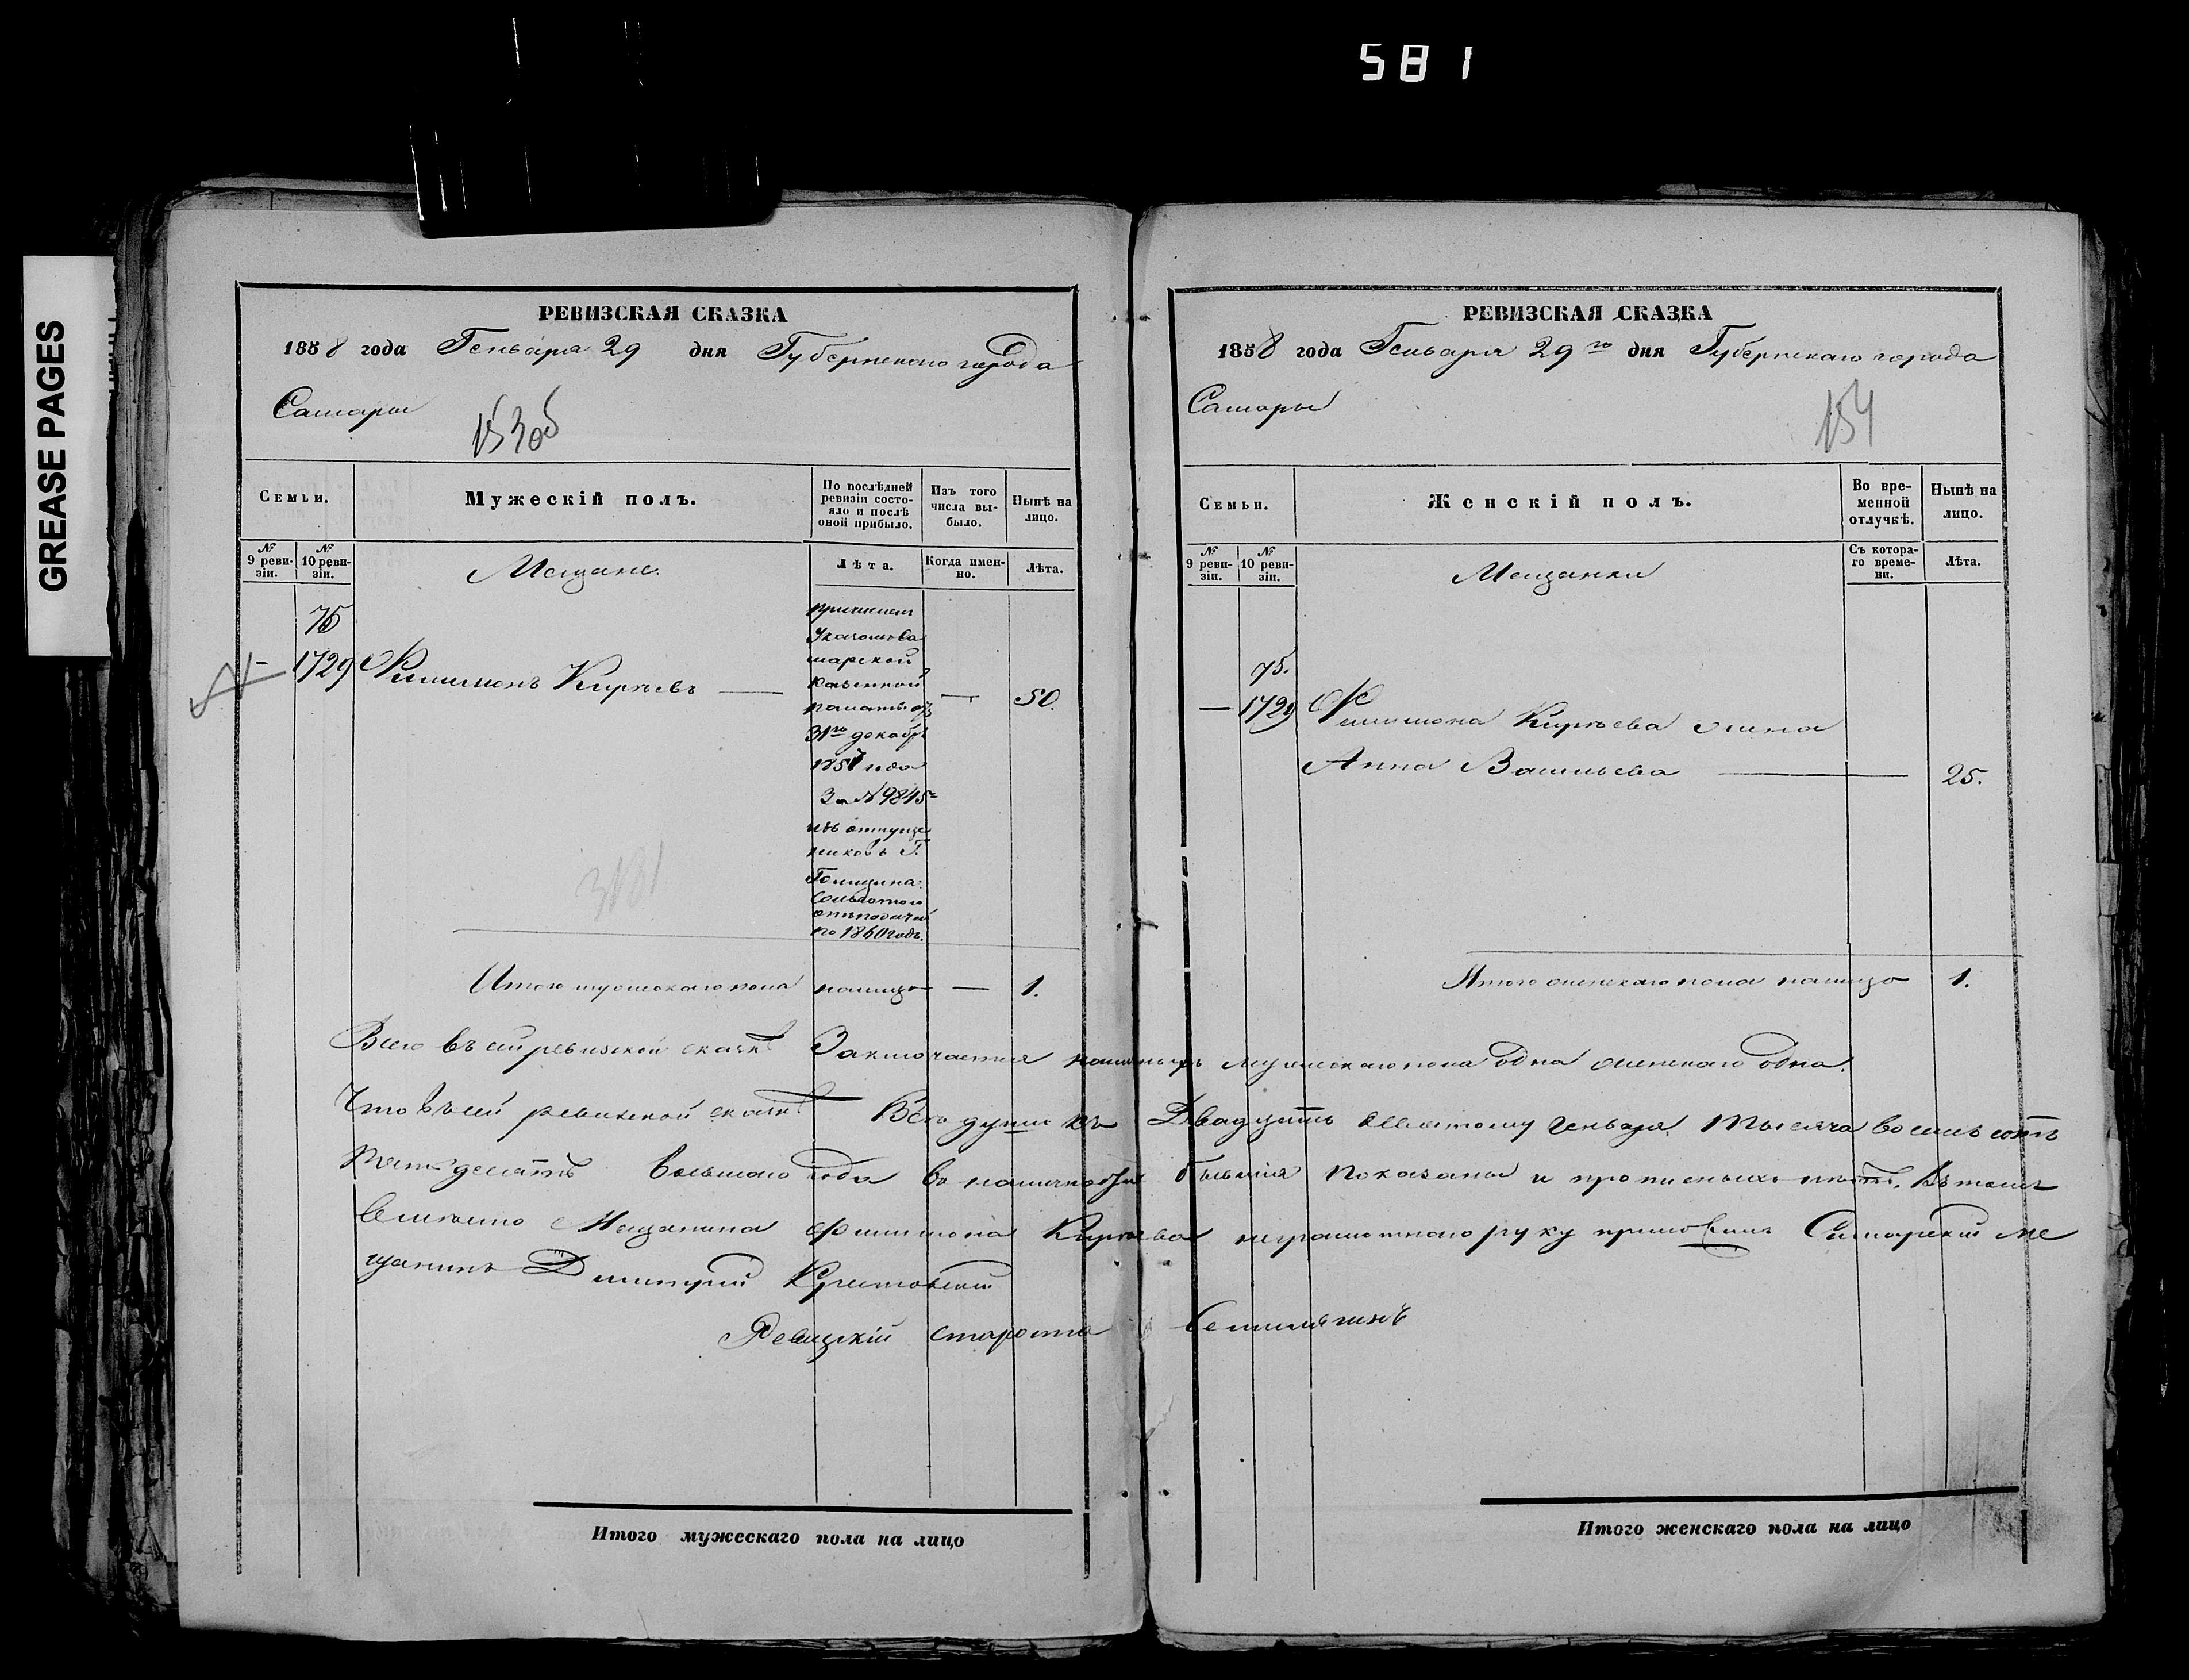 581
GREASE PAGES
РЕВИЗСКАЯ СКАЗКА
1858 года Генваря 29 дня Губернскаго города
Самары
153об
Семьи.
Мужескій полъ.
По послѣдней ревизіи состояло и послѣ оной прибыло.
Изъ того числа выбыло.
Нынѣ на лицо.
№ 9 ревизіи.
№ 10 ревизіи.
Мещане.
Лѣта.
Когда именно.
Лѣта.
75
— 1729 Филимонъ Кирѣевъ — — 50.
причисленъ
Указомъ Са
марской
казенной
палаты отъ
31го декабря
1857 года
За № 9845
изъ отпуще
никовъ Г.
Голицина.
Сольготою
отъ податей
по 1860 годъ.
3181
Итого мужескаго пола налицо — 1.
РЕВИЗСКАЯ СКАЗКА
1858 года Генваря 29го дня Губернскаго города
Самары
154
Семьи.
Женскій полъ.
Во временной отлучкѣ.
Нынѣ на лицо.
№ 9 ревизіи.
№ 10 ревизіи.
Мещанки
Съ котораго времени.
Лѣта.
75.
— 1729 Филимона Кирѣева жена
Анна Васильева — 25.
Итого женскаго пола налицо 1.
Всего въ сей ревизской сказкѣ Заключается наличныхъ мужескаго пола одна женскаго одна.
Что въ сей ревизской сказкѣ Всѣ души къ Двадцать девятому генваря тысяча восемь сотъ
пятьдесятъ восьмаго года въ наличности бывшія показаны и прописныхъ нѣтъ. Въ томъ
вмѣсто Мещанина Филимона Кирѣева неграмотнаго руку приложилъ Самарский ме
щанинъ Димитрий
Ревизскій староста
Итого мужескаго пола на лицо
Итого женскаго пола на лицо